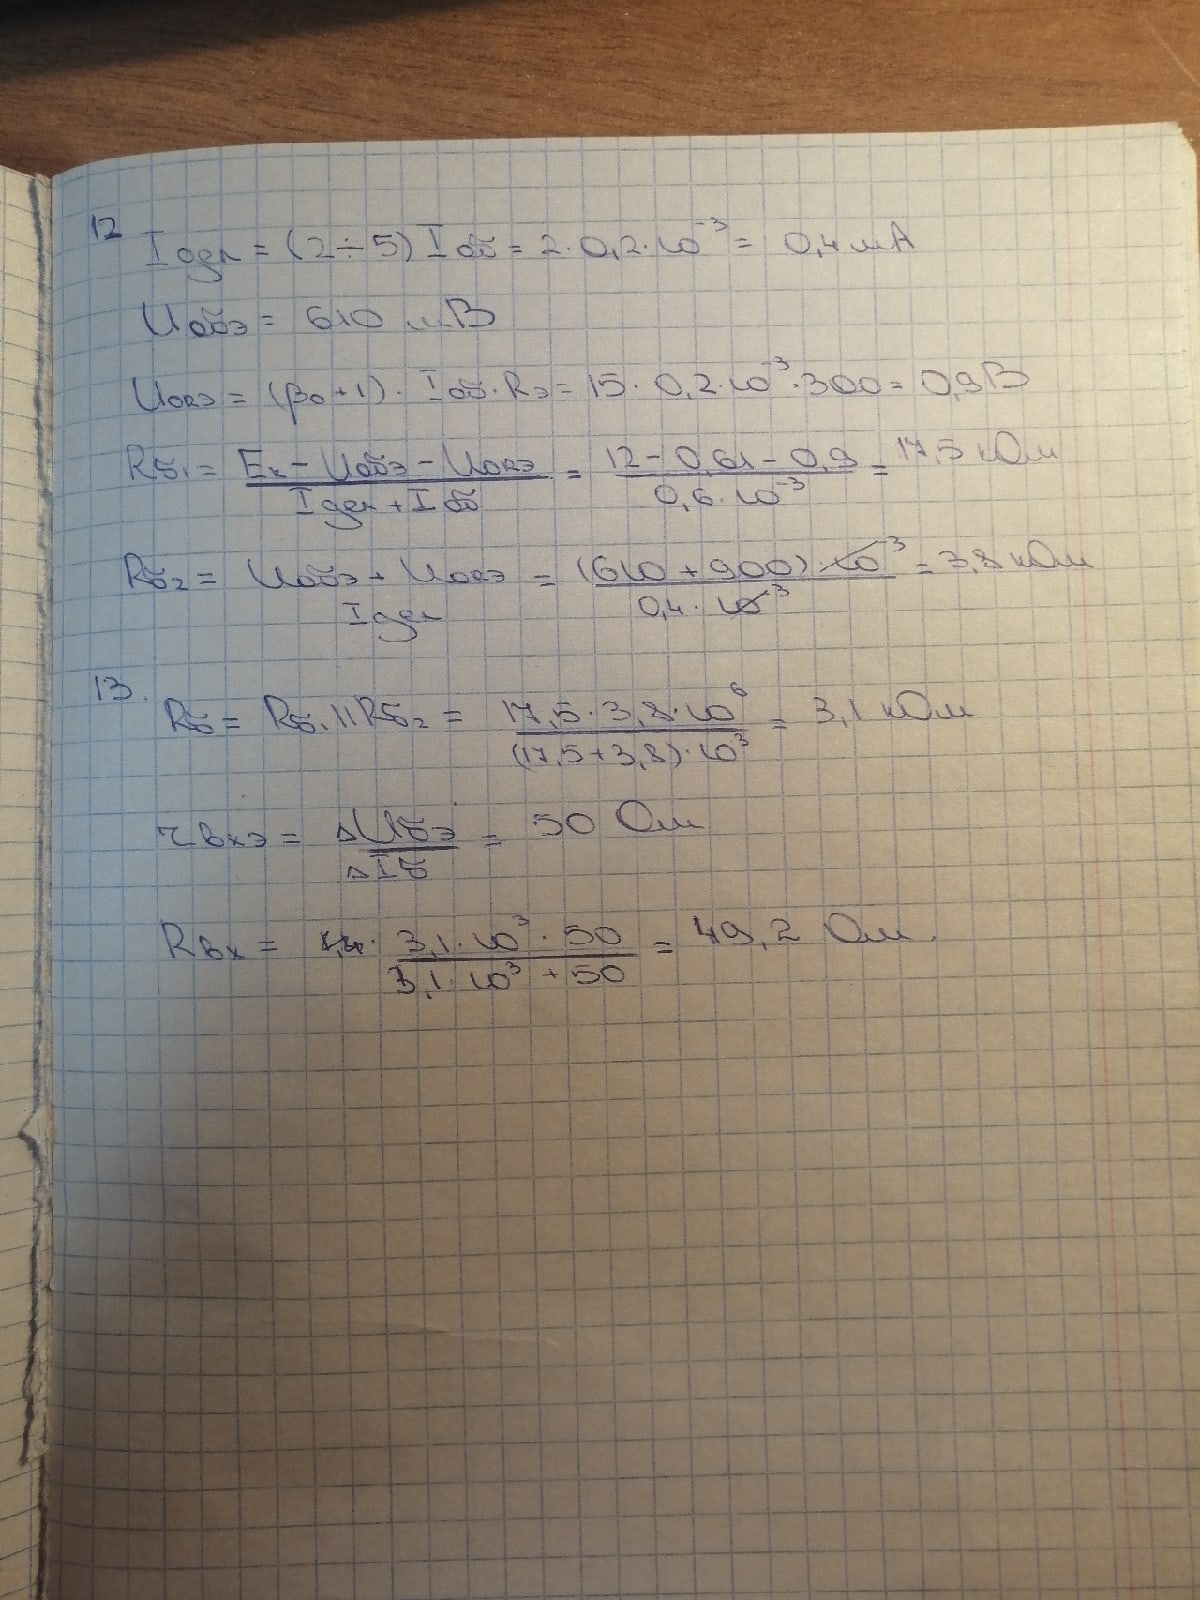 12 Iдел = (2÷5) Iоб = 2·0,2·10⁻³ = 0,4 мА
Uобэ = 610 мВ
UоRэ = (β₀+1)· Iоб·Rэ = 15·0,2·10⁻³·300 = 0,9 В
Rб₁ = (Eк – Uобэ – UоRэ)/(Iдел + Iоб) = (12 – 0,61 – 0,9)/(0,6·10⁻³) = 17,5 кОм
Rб₂ = (Uобэ + UоRэ)/Iдел = ((610 + 900)·10⁻³)/(0,4·10⁻³) = 3,8 кОм
13. Rб = Rб₁||Rб₂ = (17,5·3,8·10⁶)/((17,5+3,8)·10³) = 3,1 кОм
rвхэ = ΔUбэ/ΔIб = 50 Ом
Rвх = (3,1·10³·50)/(3,1·10³ + 50) = 49,2 Ом.